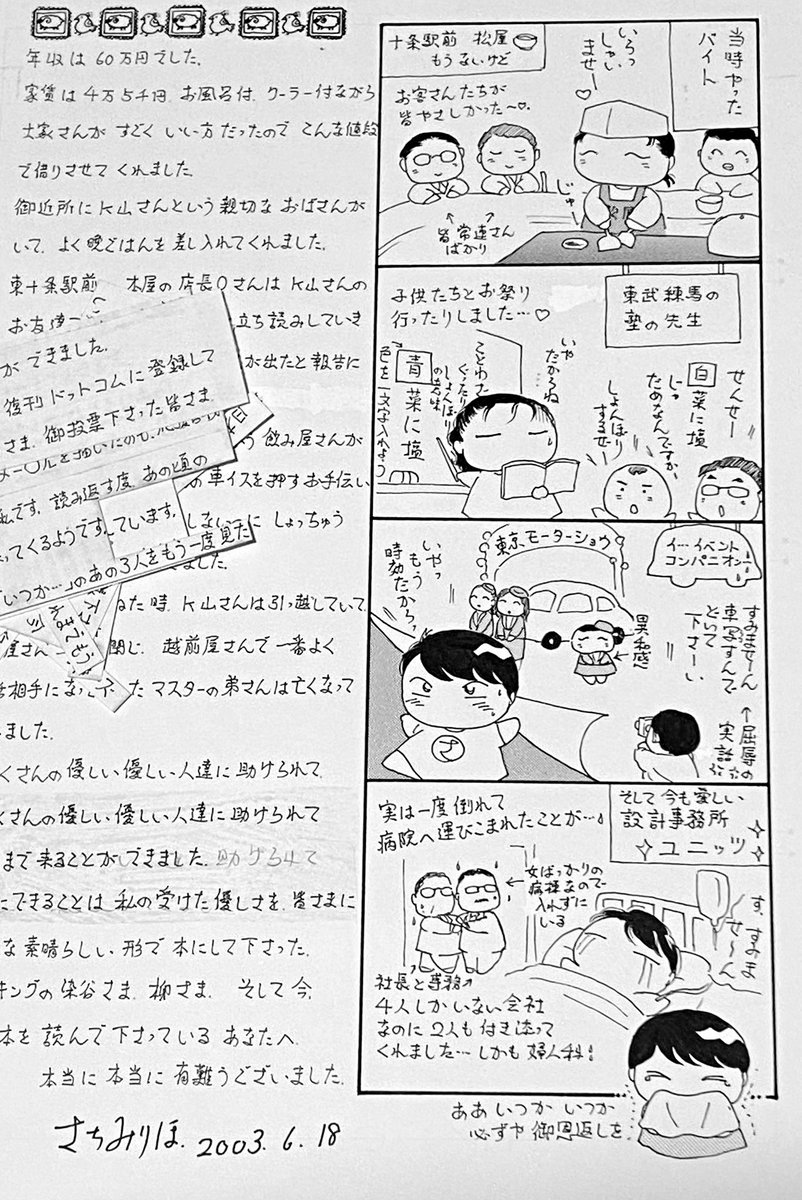 年収は60万円でした。
家賃は4万5千円、お風呂付、クーラー付ながら
大家さんが すごく いい方だったので こんな値段
で借りさせて くれました。
御近所にK山さんという親切な おばさんが
いて、よく晩ごはんを差し入れてくれました。
東十条駅前 本屋の店長〇さんは K山さんの
お友達
立ち読みしていき
ができました。
が出たと報告に
復刊ドットコムに登録して
さま、御投票下さった皆さま、
飲み屋さんが
の車イスを押すお手伝い
私です。読み返す度、あの頃の
しょっちゅう
ってくるようです。
ています。
いつか…」のあの3人をもう一度見た
ました。
ねた時、K山さんは引っ越していて、
屋さん
閉じ、越前屋さんで一番よく
相手になって
たマスターの弟さんは亡くなって
いました。
くさんの優しい優しい人達に助けられて、
くさんの優しい優しい人達に助けられて
まで来ることができました。助けられて
にできることは 私の受けた優しさを、皆さまに
な素晴らしい形で本にして下さった、
キングの染谷さま、柳さま、そして今、
本を読んで下さっている あなたへ。
本当に本当に有難うございました。
さちみりほ. 2003. 6. 18
当時やった
バイト
十条駅前 松屋
もうないけど
いらっ
しゃい
ませー♡
お客さんたちが
皆やさしかった〜♡
じゅ
皆常連さん
ばかり
東武練馬の
塾の先生
子供たちとお祭り
行ったりしました…♡
せんせー
白菜に塩
じゃ
だめなんですか
しょんぼり
するぜー
いや
だからね
ことわざ
ぐったり
しょんぼり
の意味
青菜に塩
色を一文字入れよう
イ…イベント
コンパニオン
東京モーターショウ
いやっ
もう
時効だからっ
異和感
すみませーん
車写すんで
どいて
下さーい
↑屈辱の
実話
そして今も愛しい
設計事務所
ユニッツ
実は一度倒れて
病院へ運びこまれたことが…
女ばっかりの
病棟なので
入れずに
いる
す、すいま
せーん
社長と専務
4人しかいない会社
なのに2人も付き添って
くれました…しかも婦人科!
ああ いつか いつか
必ずや 御恩返しを